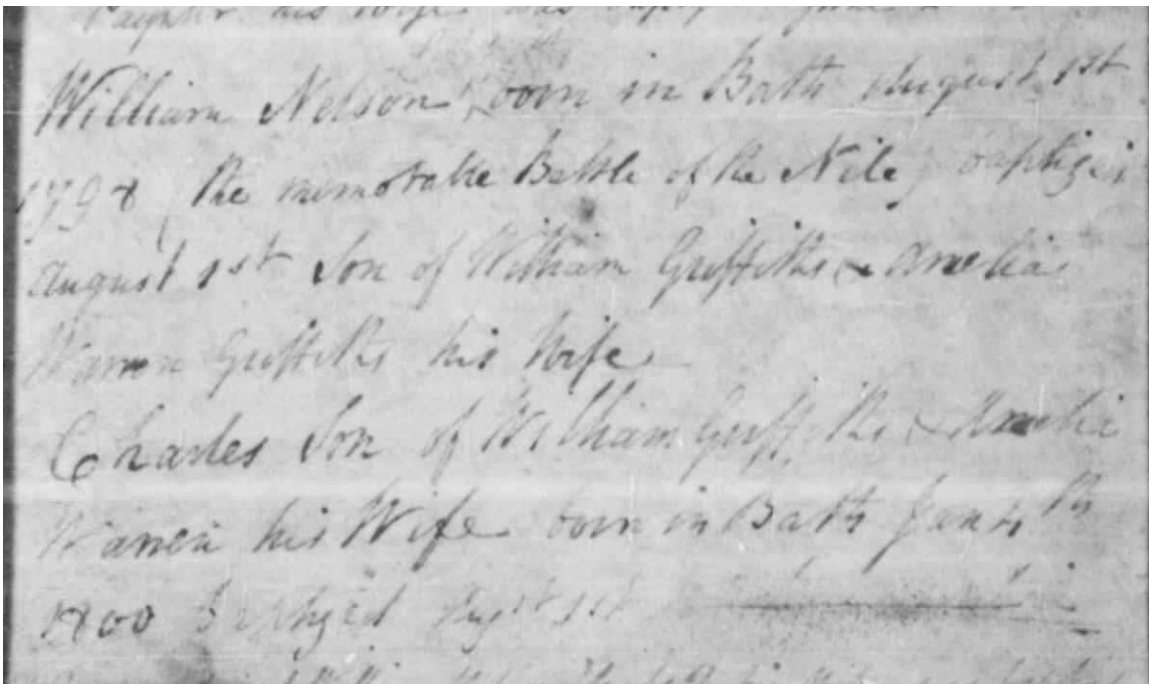 his Wife was
William Nelson born in Bath August 1st
1798 (the memorable Battle of the Nile) baptized
August 1st Son of William Griffiths & Amelia
Warren Griffiths his Wife
Charles Son of William Griffiths & Amelia
Warren his Wife born in Bath Jan 4th
1800 Baptized Augst 1st